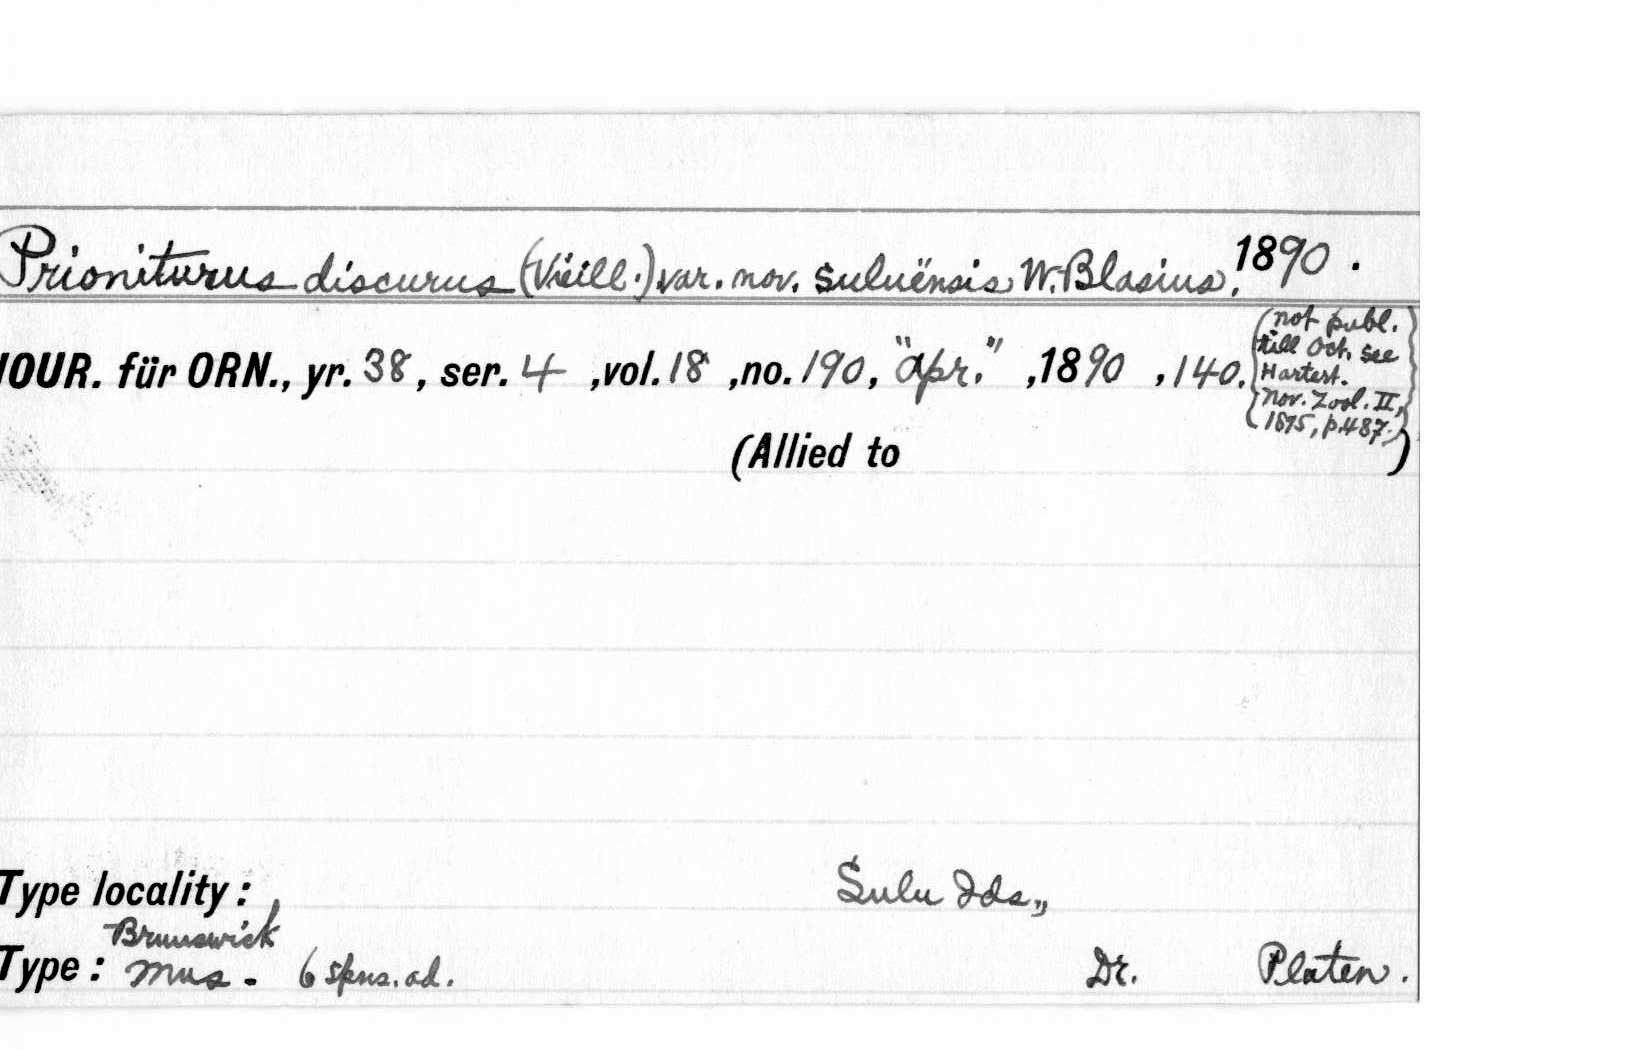 Prioniturus discurus (Vieill.) var. nov. suluënsis W. Blasius, 1890.
JOUR. für ORN., yr. 38, ser. 4, vol. 18, no. 190, "Apr.", 1890, 140.
(not publ.
till Oct. see
Hartert.
Nov. Zool. II,
1895, p. 487.)
(Allied to )
Type locality: Sulu Ids.,,
Brunswick
Type: Mus. - 6 spns. ad. Dr. Platen.